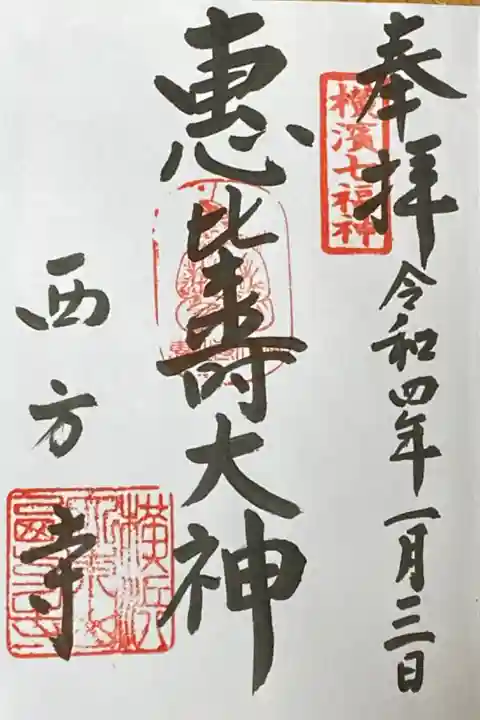 奉拝
令和四年一月三日
横濱七福神
恵比寿大神
西方寺